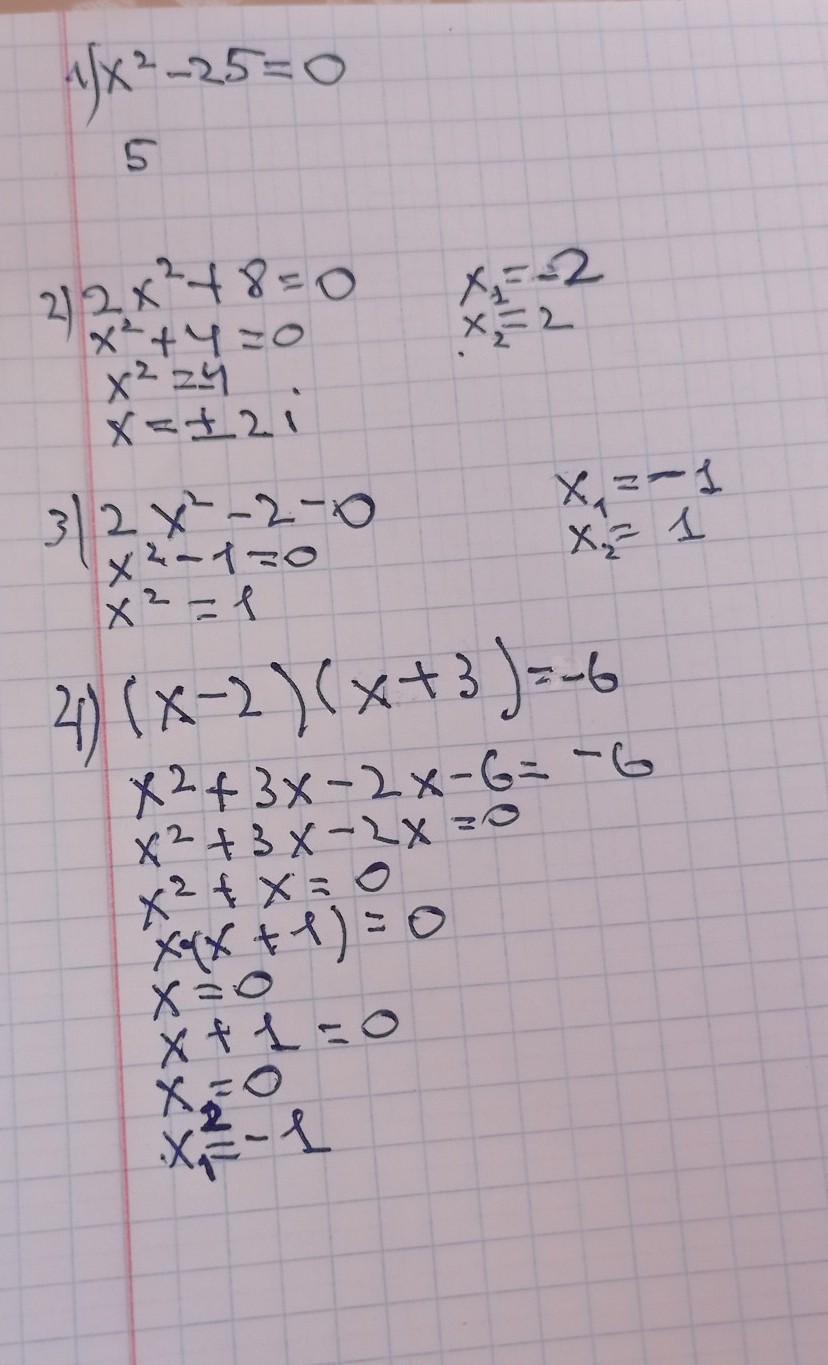 1) x² -25=0
5
2) 2x²+8=0
x²+4=0
x²=4
x=±2i
x₁=-2
x₂=2
3) 2x²-2-0
x²-1=0
x²=1
x₁=-1
x₂=1
4) (x-2)(x+3)=-6
x²+3x-2x-6=-6
x²+3x-2x=0
x²+x=0
x·(x+1)=0
x=0
x+1=0
x₂=0
x₁=-1